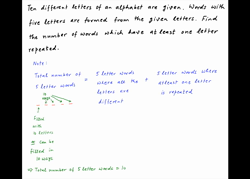 Ten different letters of an alphabet are given. Words with
five letters are formed from the given letters. Find
the number of words which have at least one letter
repeated.
Note:
Total number of 5 letter words = 5 letter words where all the letters are different + 5 letter words where atleast one letter is repeated
10 ways
filled
with
can be
filled in
10 ways
⇒ Total number of 5 letter words = 10